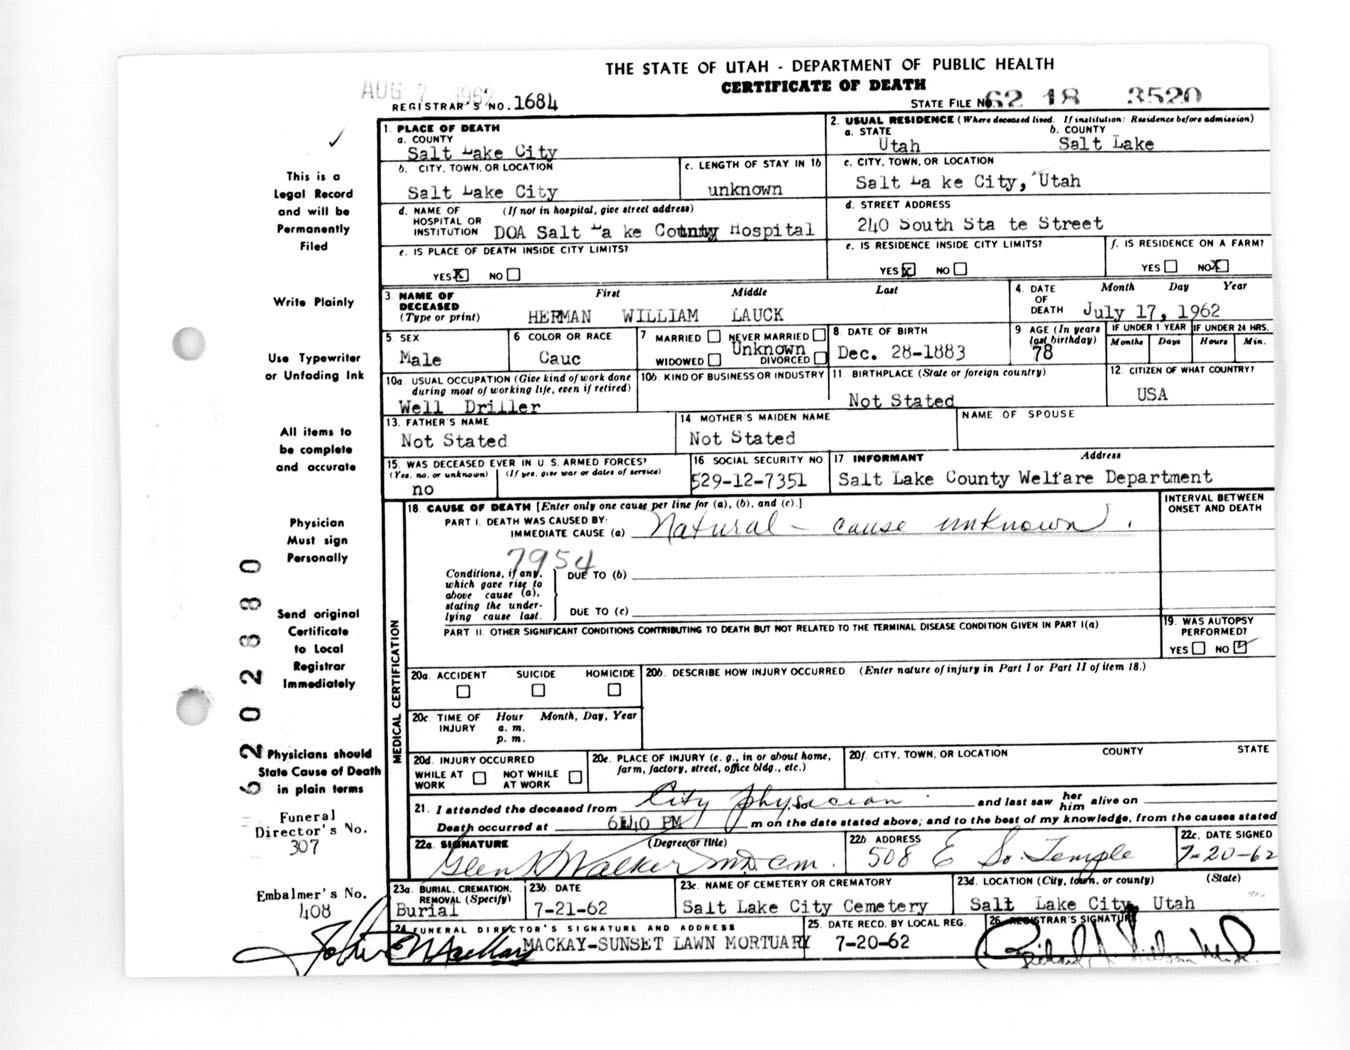 THE STATE OF UTAH - DEPARTMENT OF PUBLIC HEALTH
CERTIFICATE OF DEATH
AUG 7 1962
REGISTRAR'S NO. 1684
STATE FILE NO. 62 18 3520
This is a
Legal Record
and will be
Permanently
Filed
Write Plainly
Use Typewriter
or Unfading Ink
All items to
be complete
and accurate
Physician
Must sign
Personally
Send original
Certificate
to Local
Registrar
Immediately
Physicians should
State Cause of Death
in plain terms
Funeral
Director's No.
307
Embalmer's No.
408
6202380
1. PLACE OF DEATH
a. COUNTY
Salt Lake City
b. CITY, TOWN, OR LOCATION
Salt Lake City
c. LENGTH OF STAY IN 1b
unknown
d. NAME OF HOSPITAL OR INSTITUTION (If not in hospital, give street address)
DOA Salt La ke County Hospital
e. IS PLACE OF DEATH INSIDE CITY LIMITS?
YES X NO
2. USUAL RESIDENCE (Where deceased lived. If institution: Residence before admission)
a. STATE
Utah
b. COUNTY
Salt Lake
c. CITY, TOWN, OR LOCATION
Salt La ke City, Utah
d. STREET ADDRESS
240 South Sta te Street
e. IS RESIDENCE INSIDE CITY LIMITS?
YES X NO
f. IS RESIDENCE ON A FARM?
YES NO X
3. NAME OF DECEASED (Type or print)
First Middle Last
HERMAN WILLIAM LAUCK
4. DATE OF DEATH
Month Day Year
July 17, 1962
5. SEX
Male
6 COLOR OR RACE
Cauc
7 MARRIED NEVER MARRIED
Unknown
WIDOWED DIVORCED
8. DATE OF BIRTH
Dec. 28-1883
9 AGE (In years last birthday)
78
IF UNDER 1 YEAR IF UNDER 24 HRS.
Months Days Hours Min.
10a. USUAL OCCUPATION (Give kind of work done
during most of working life, even if retired)
Well Driller
10b. KIND OF BUSINESS OR INDUSTRY
11. BIRTHPLACE (State or foreign country)
Not Stated
12. CITIZEN OF WHAT COUNTRY?
USA
13. FATHER'S NAME
Not Stated
14 MOTHER'S MAIDEN NAME
Not Stated
NAME OF SPOUSE
15. WAS DECEASED EVER IN U. S. ARMED FORCES?
(Yes, no, or unknown) (If yes, give war or dates of service)
no
16. SOCIAL SECURITY NO.
529-12-7351
17. INFORMANT Address
Salt Lake County Welfare Department
MEDICAL CERTIFICATION
18. CAUSE OF DEATH [Enter only one cause per line for (a), (b), and (c).]
PART I. DEATH WAS CAUSED BY:
IMMEDIATE CAUSE (a) Natural - cause unknown.
INTERVAL BETWEEN
ONSET AND DEATH
7954
Conditions, if any,
which gave rise to
above cause (a),
stating the under-
lying cause last.
DUE TO (b)
DUE TO (c)
PART II. OTHER SIGNIFICANT CONDITIONS CONTRIBUTING TO DEATH BUT NOT RELATED TO THE TERMINAL DISEASE CONDITION GIVEN IN PART I(a)
19. WAS AUTOPSY
PERFORMED?
YES NO
20a. ACCIDENT SUICIDE HOMICIDE
20b. DESCRIBE HOW INJURY OCCURRED. (Enter nature of injury in Part I or Part II of item 18.)
20c. TIME OF INJURY
Hour Month, Day, Year
a. m.
p. m.
20d. INJURY OCCURRED
WHILE AT WORK NOT WHILE AT WORK
20e. PLACE OF INJURY (e. g., in or about home,
farm, factory, street, office bldg., etc.)
20f. CITY, TOWN, OR LOCATION COUNTY STATE
21. I attended the deceased from City Physician and last saw her him alive on
Death occurred at 6:40 PM m on the date stated above; and to the best of my knowledge, from the causes stated
22a. SIGNATURE (Degree or title)
Glen Walker M.D. cm.
22b. ADDRESS
508 E So. Temple
22c. DATE SIGNED
7-20-62
23a. BURIAL, CREMATION,
REMOVAL (Specify)
Burial
23b. DATE
7-21-62
23c. NAME OF CEMETERY OR CREMATORY
Salt Lake City Cemetery
23d. LOCATION (City, town, or county) (State)
Salt Lake City, Utah
24 FUNERAL DIRECTOR'S SIGNATURE AND ADDRESS
John E Mackay MACKAY-SUNSET LAWN MORTUARY
25. DATE RECD. BY LOCAL REG.
7-20-62
26. REGISTRAR'S SIGNATURE